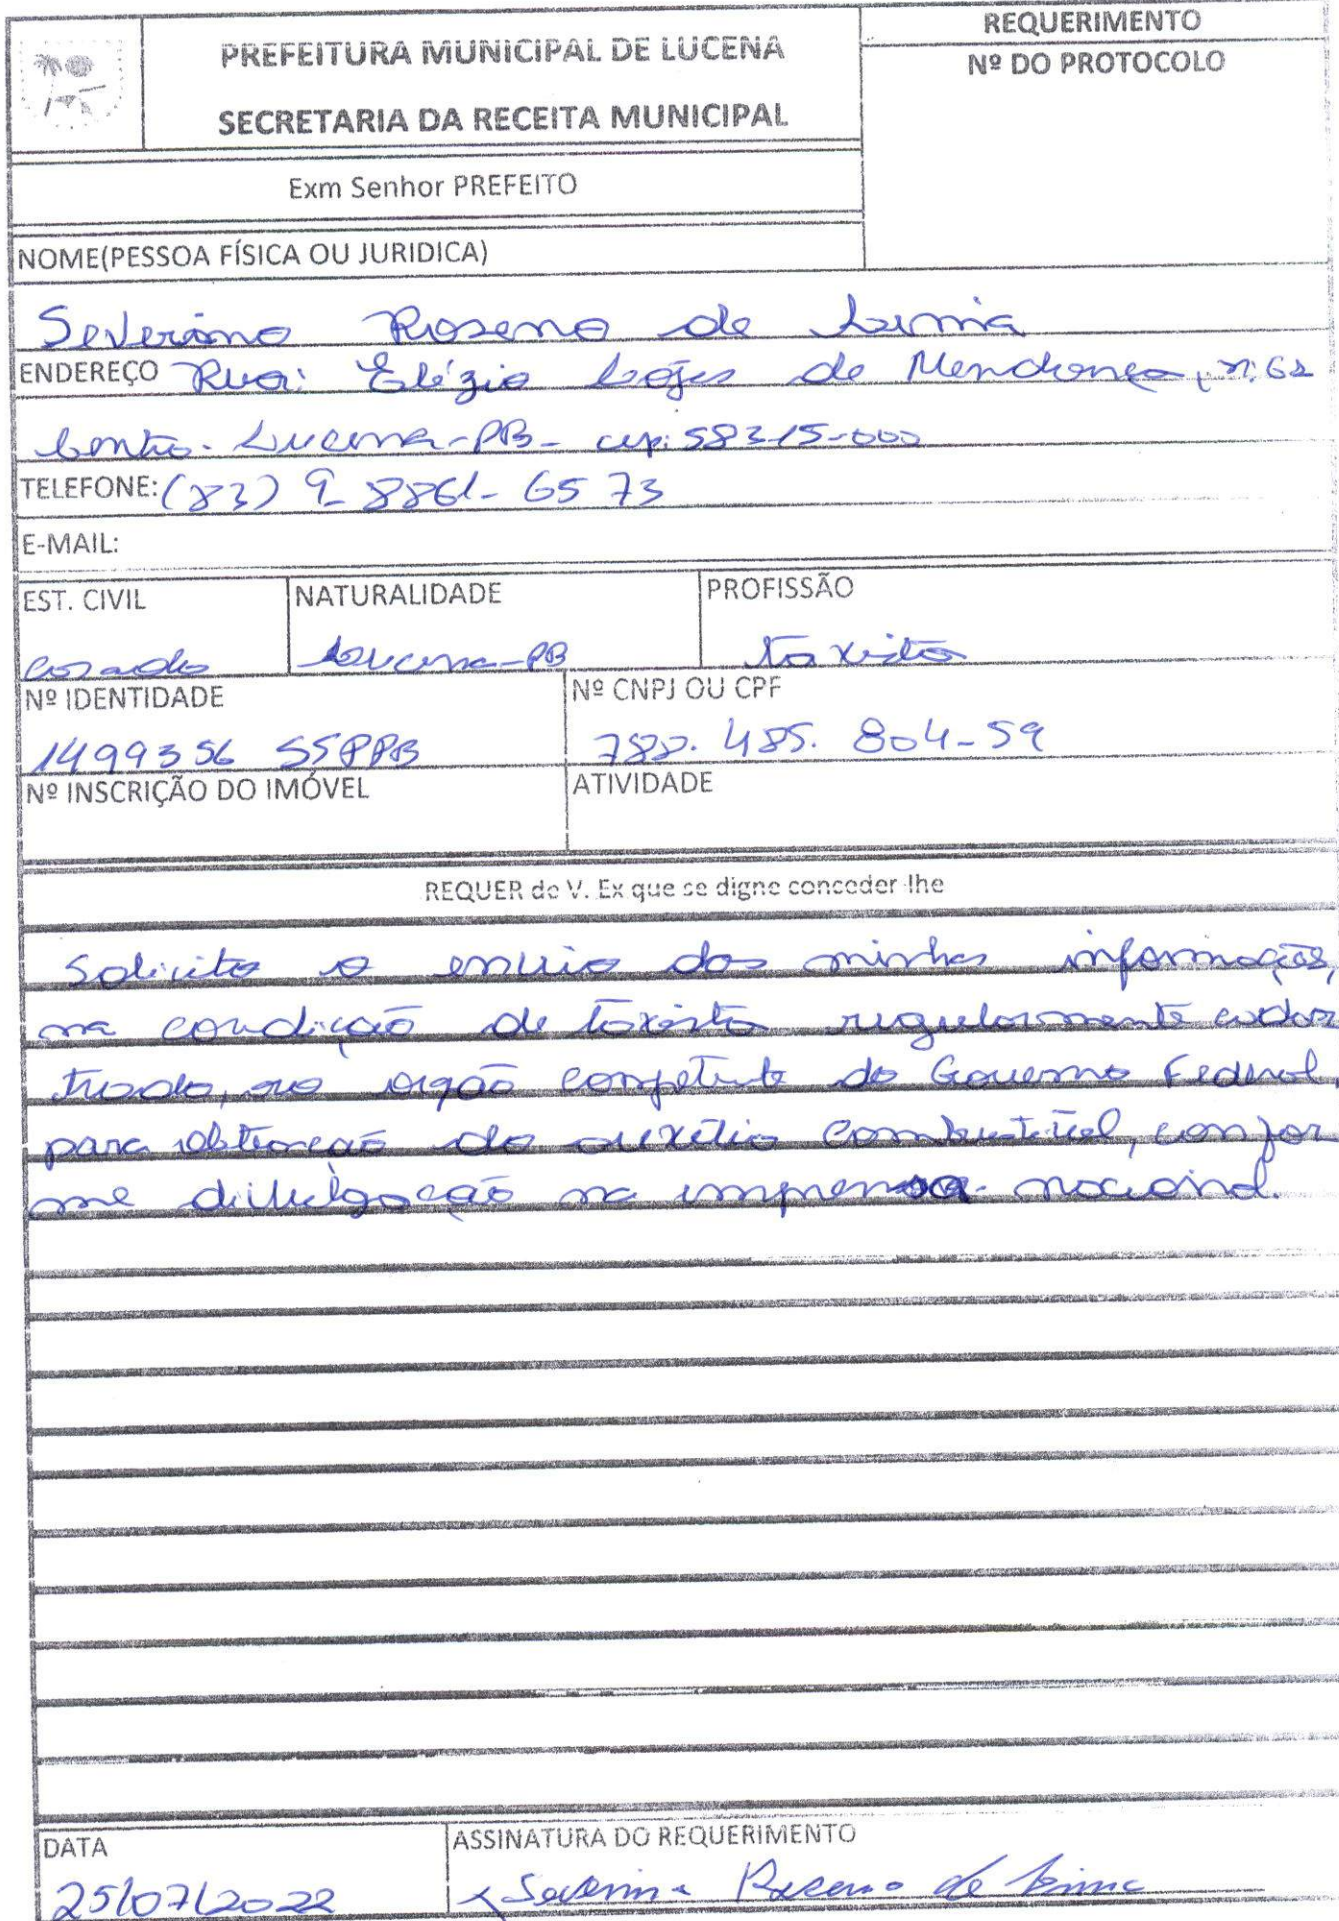 REQUERIMENTO
PREFEITURA MUNICIPAL DE LUCENA
Nº DO PROTOCOLO
SECRETARIA DA RECEITA MUNICIPAL
Exm Senhor PREFEITO
NOME(PESSOA FÍSICA OU JURIDICA)
Severino Roseno de Lima
ENDEREÇO Rua: Elézio de Mendonça, nº 62
Centro - Lucena-PB - cep: 58315-000
TELEFONE: (83) 9-8861-6573
E-MAIL:
EST. CIVIL NATURALIDADE PROFISSÃO
casado Lucena-PB taxista
Nº IDENTIDADE Nº CNPJ OU CPF
1499356 SSPPB 788.485.804-59
Nº INSCRIÇÃO DO IMÓVEL ATIVIDADE
REQUER de V. Ex que se digne conceder-lhe
Solicito o envio das minhas informações,
na condição de taxista regularmente cadas
trado, ao orgão competente do Governo Federal,
para obtenção do auxílio Combustível, confor
me divulgação na imprensa nacional.
DATA ASSINATURA DO REQUERIMENTO
25/07/2022 x Severino Roseno de Lima